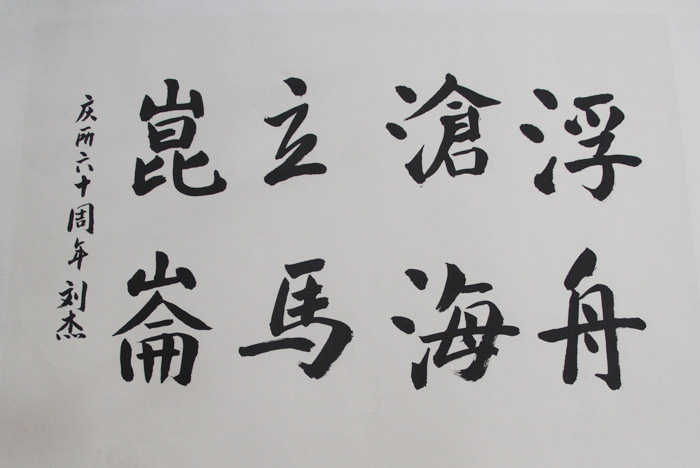 浮舟
滄海
立馬
崑崙
庆所六十周年 刘杰